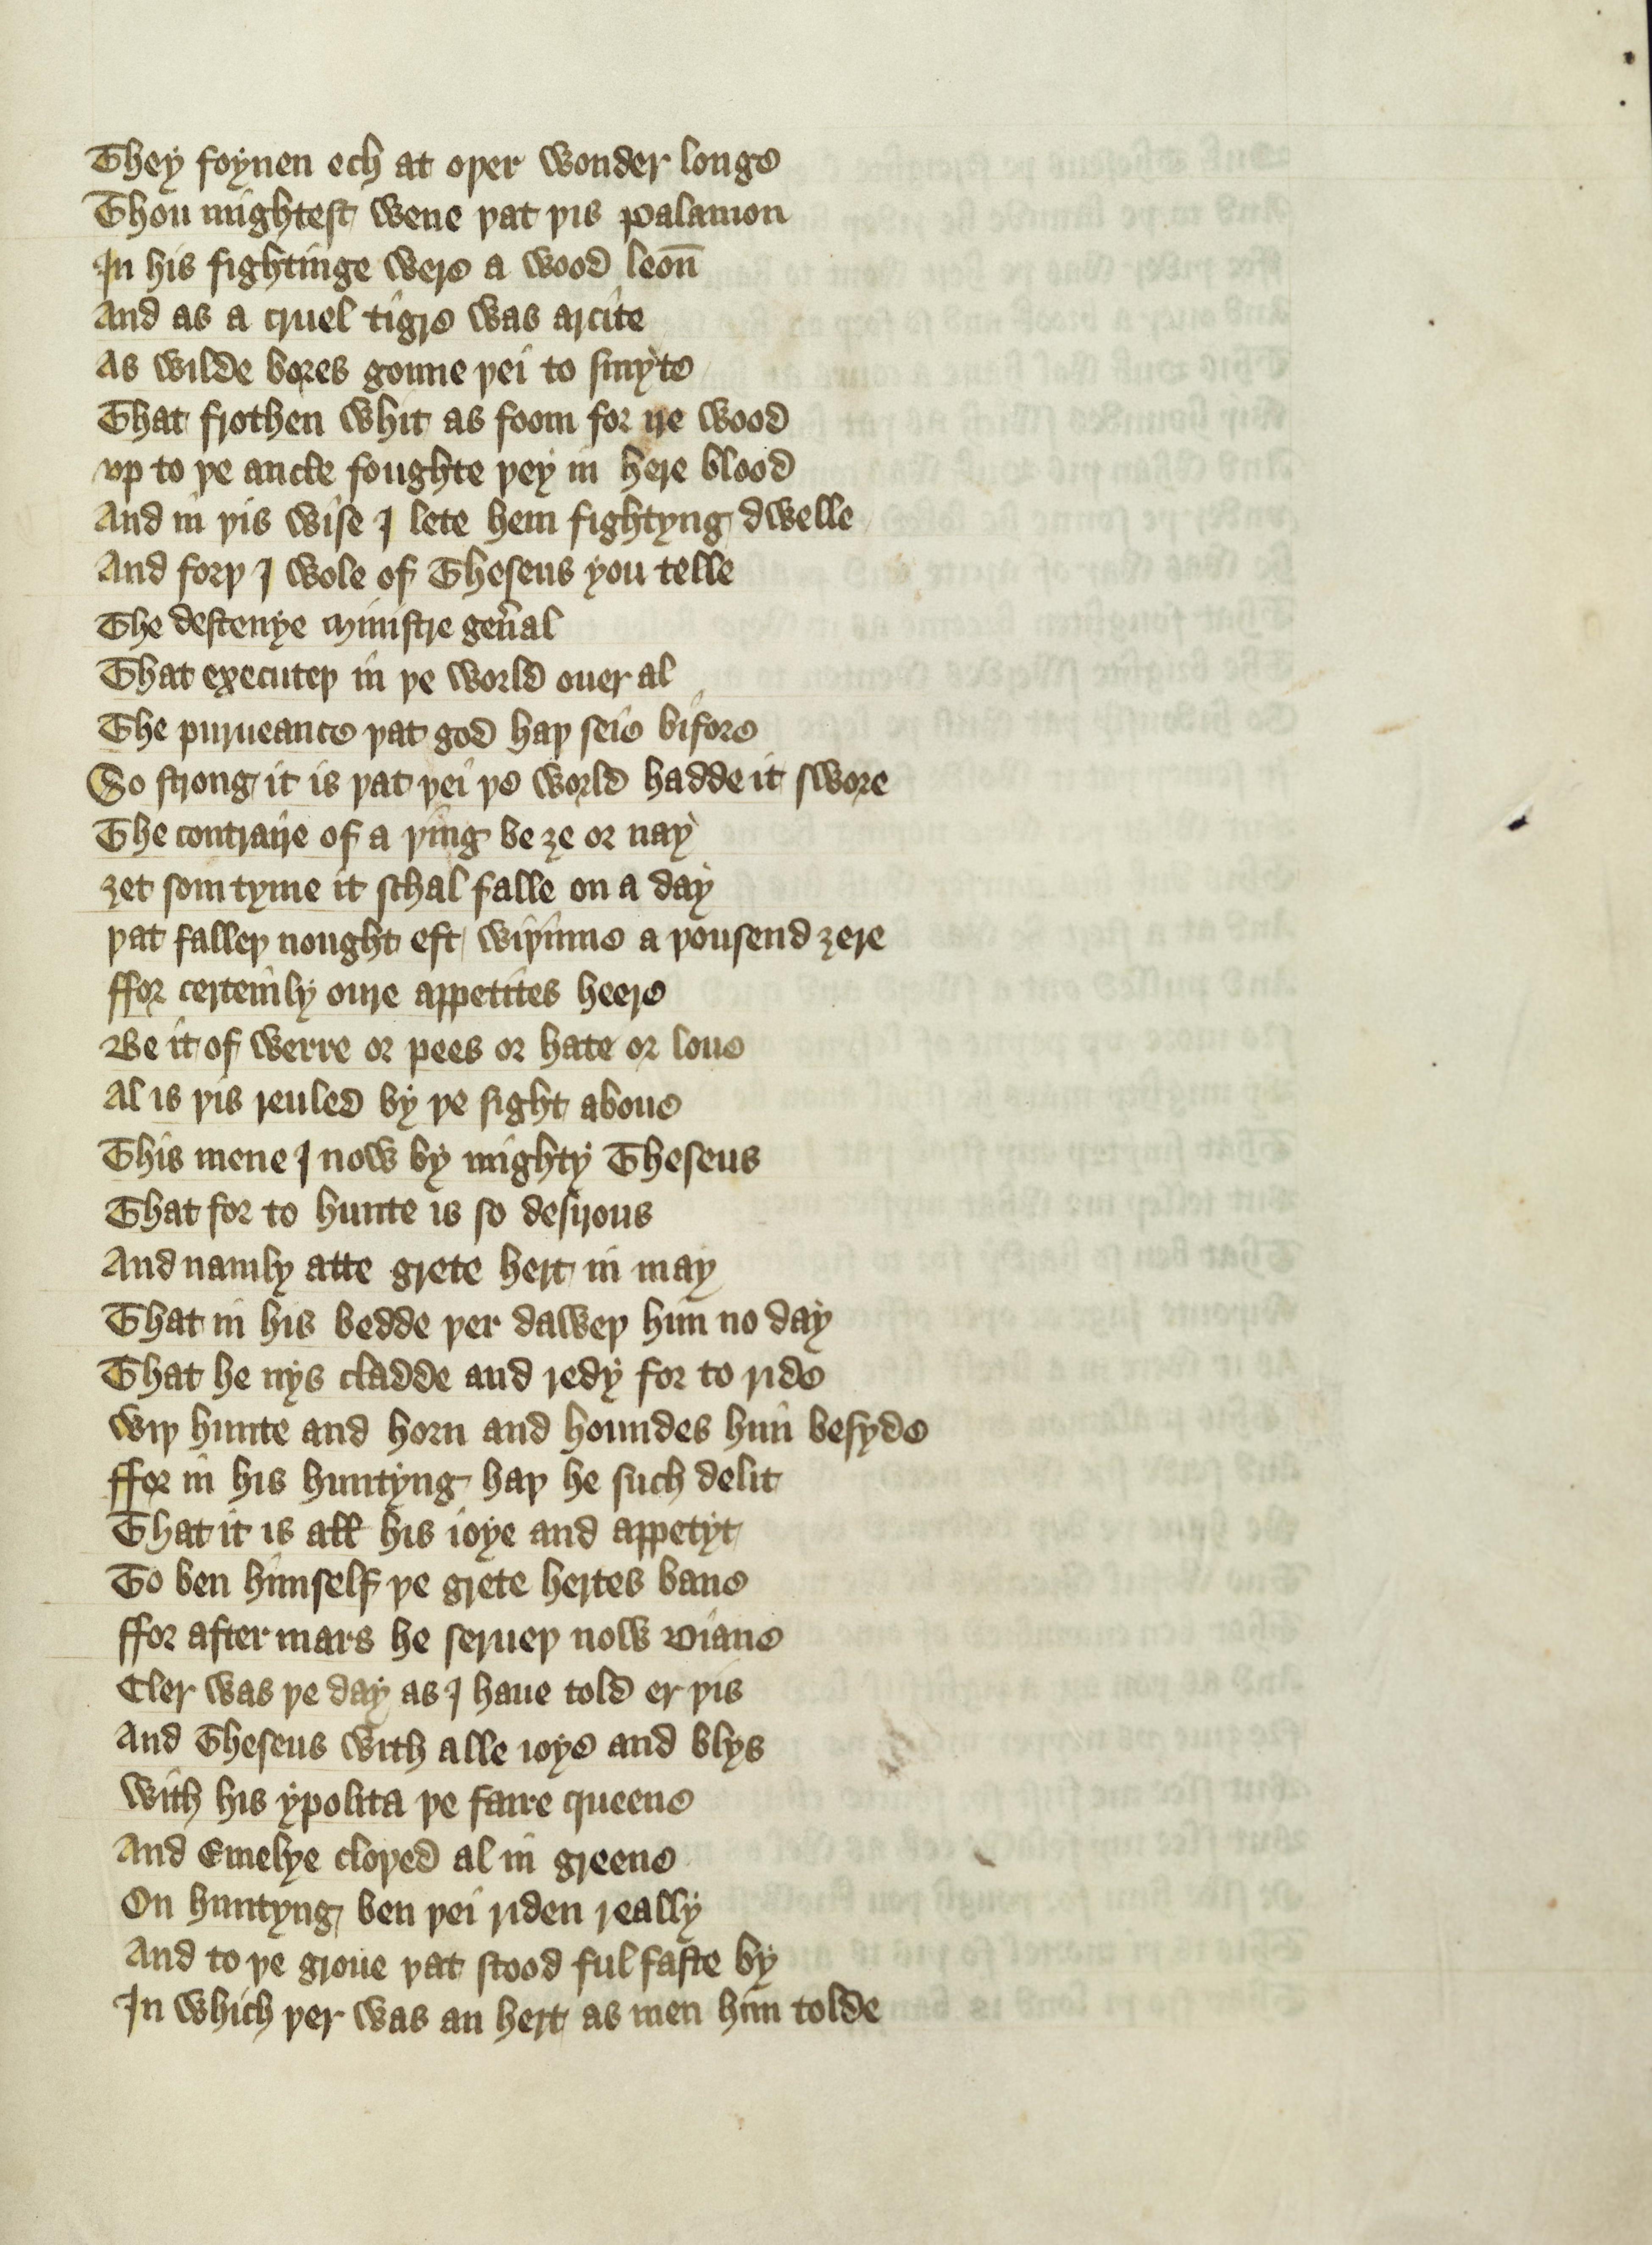 They foynen ech at oþer wonder longe
Thou mightest wene þat þis palamon
In his fightinge were a wood leon̄
And as a cruel tigre was arcite
As wilde bores gonne þei to smyte
That frothen whit as foom for ire wood
vp to þe ancle foughte þey in here blood
And in þis wise I lete hem fightyng dwelle
And forþ I wole of Theseus you telle
The destenye ministre gen̄al
That executeþ in þe world ouer al
The purueance þat god haþ seie bifore
So strong it is þat þei þe world hadde it swore
The contraire of a þing be ȝe or nay
ȝet som tyme it schal falle on a day
þat falleþ nought eft wiþinne a þousend ȝere
ffor certeinly oure appetites heere
Be it of werre or pees or hate or loue
Al is þis reuled by þe sight aboue
This mene I now by mighty Theseus
That for to hunte is so desirous
And namly atte grete hert in may
That in his bedde þer daweþ him no day
That he nys cladde and redy for to ride
wiþ hunte and horn and houndes him besyde
ffor in his huntyng haþ he such delit
That it is all his ioye and appetyt
To ben himself þe grete hertes bane
ffor after mars he serueþ now Diane
Cler was þe day as I haue told er þis
And Theseus with alle ioye and blys
with his ypolita þe faire queene
And Emelye cloþed al in greene
On huntyng ben þei riden really
And to þe groue þat stood ful faste by
In which þer was an hert as men him tolde